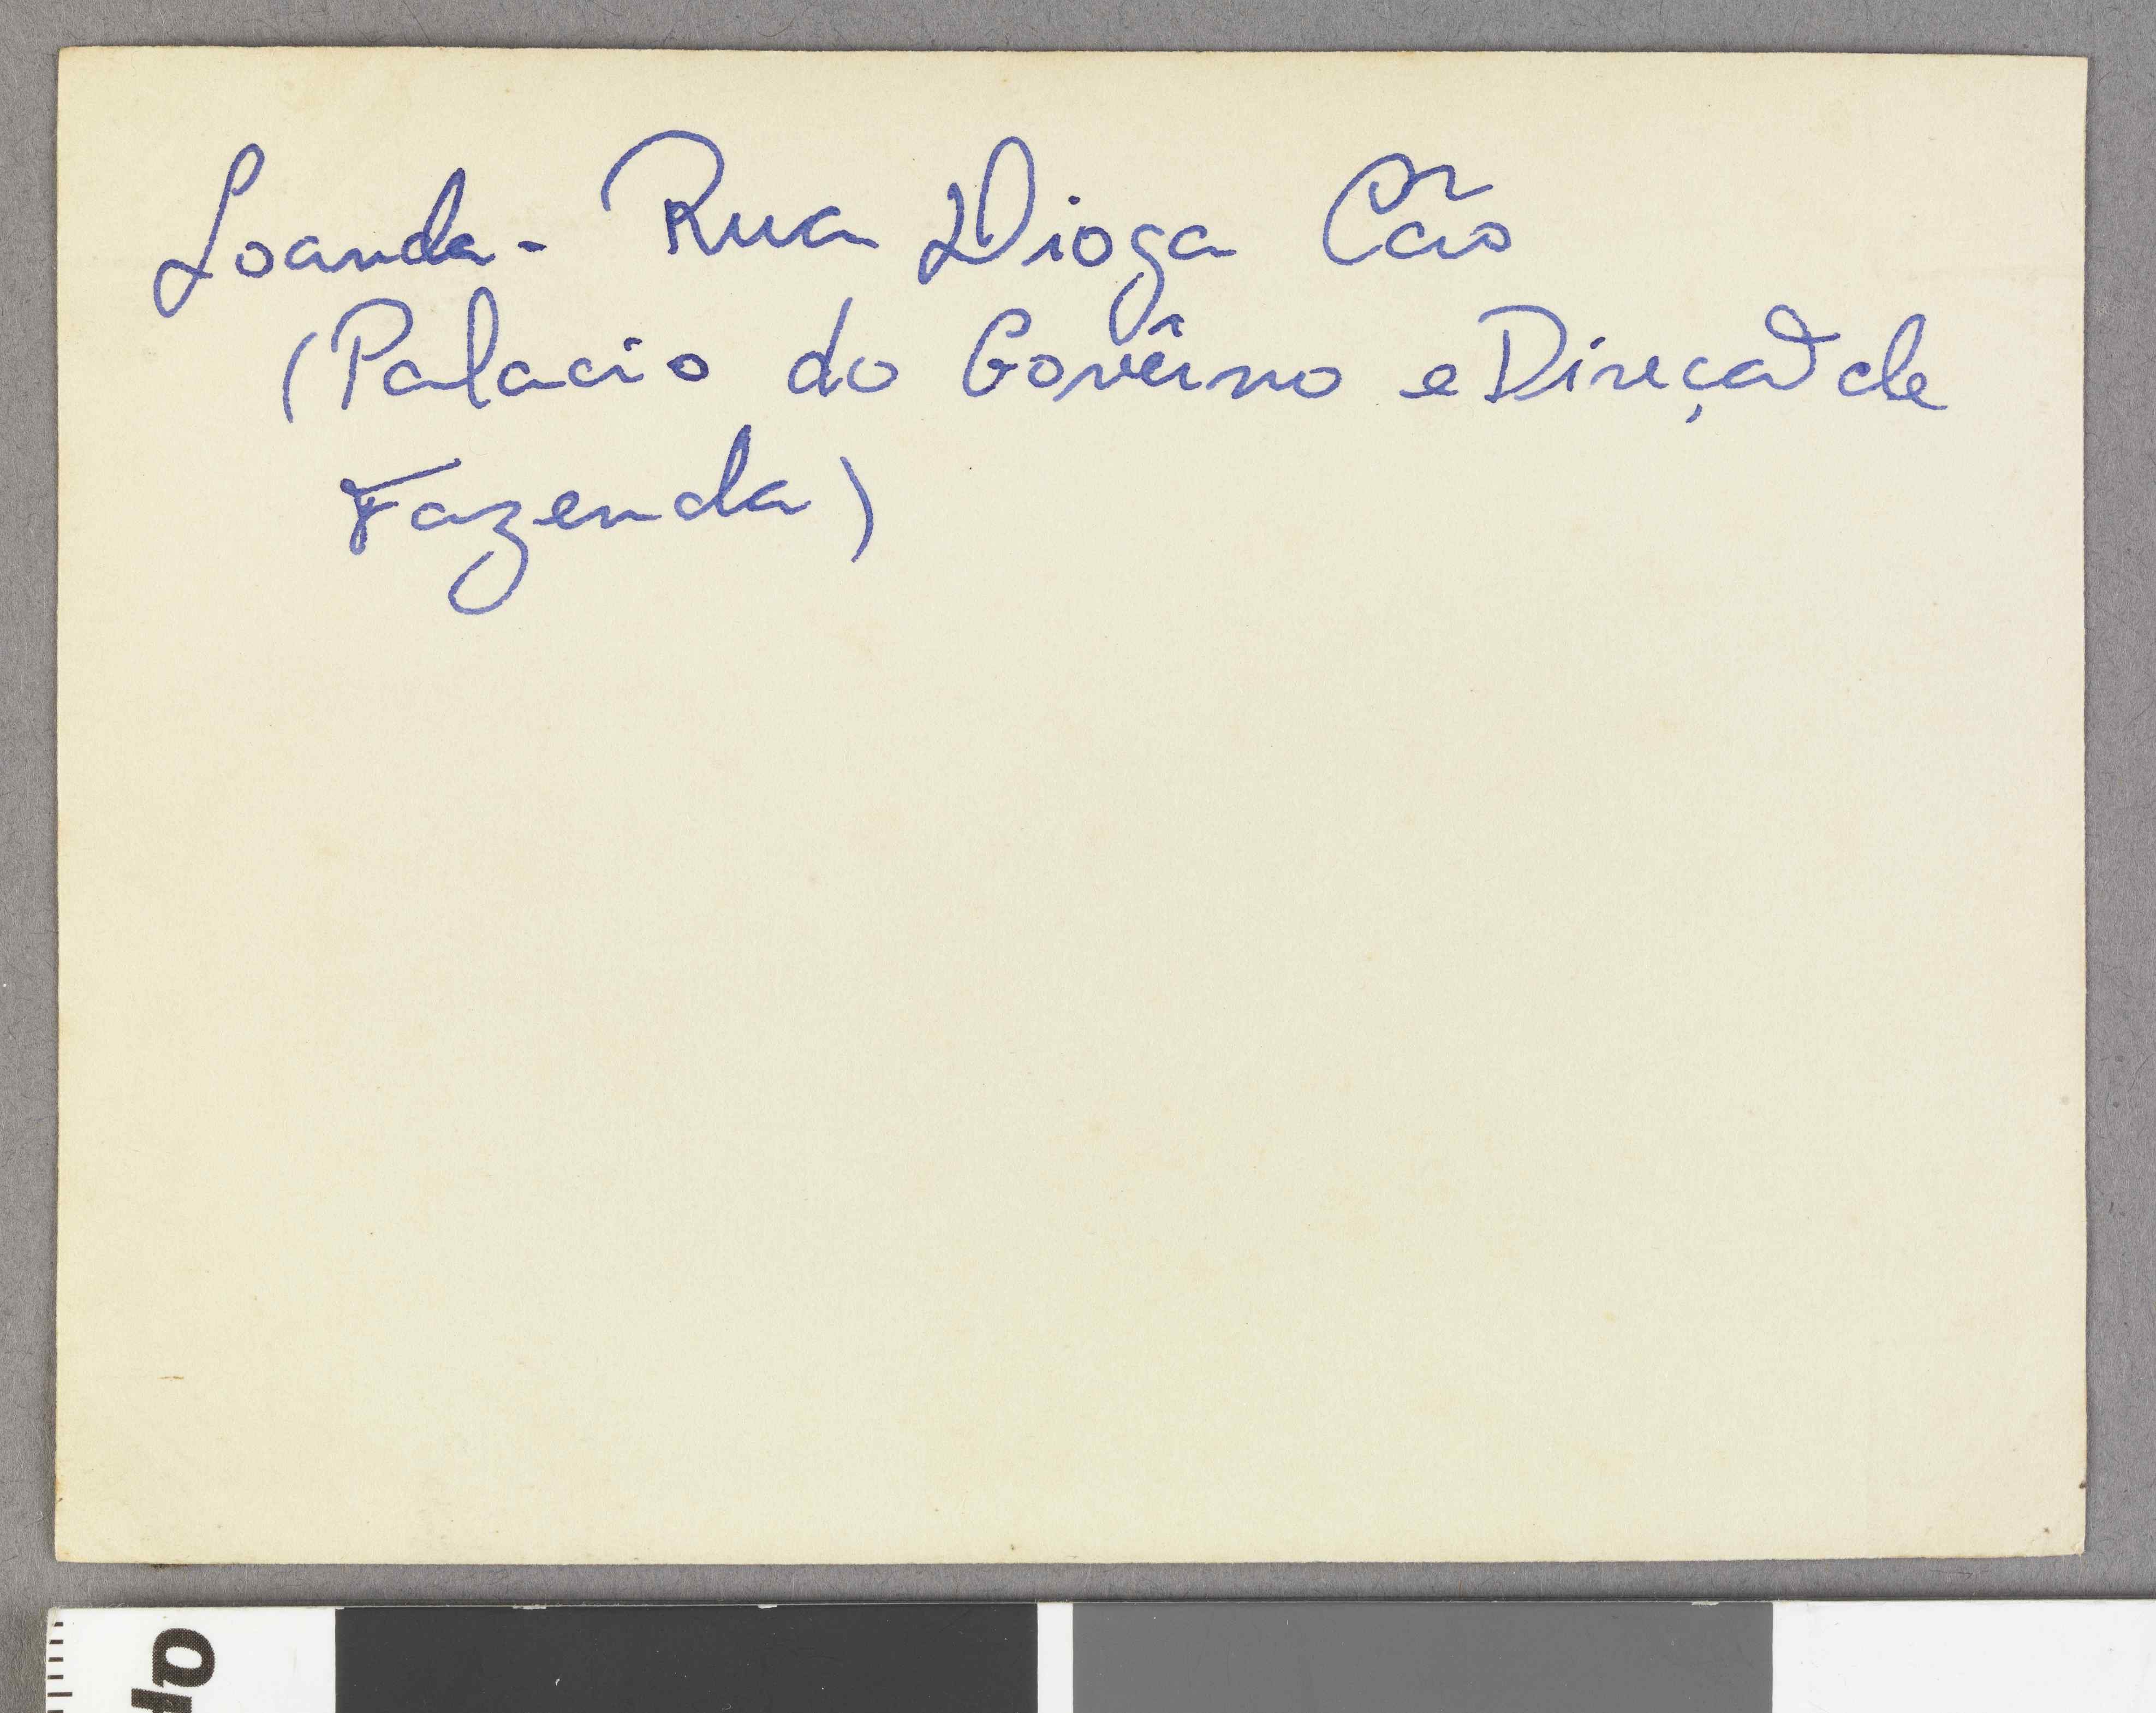 Loanda - Rua Dioga Cão
(Palacio do Govêrno e Direção de
Fazenda)